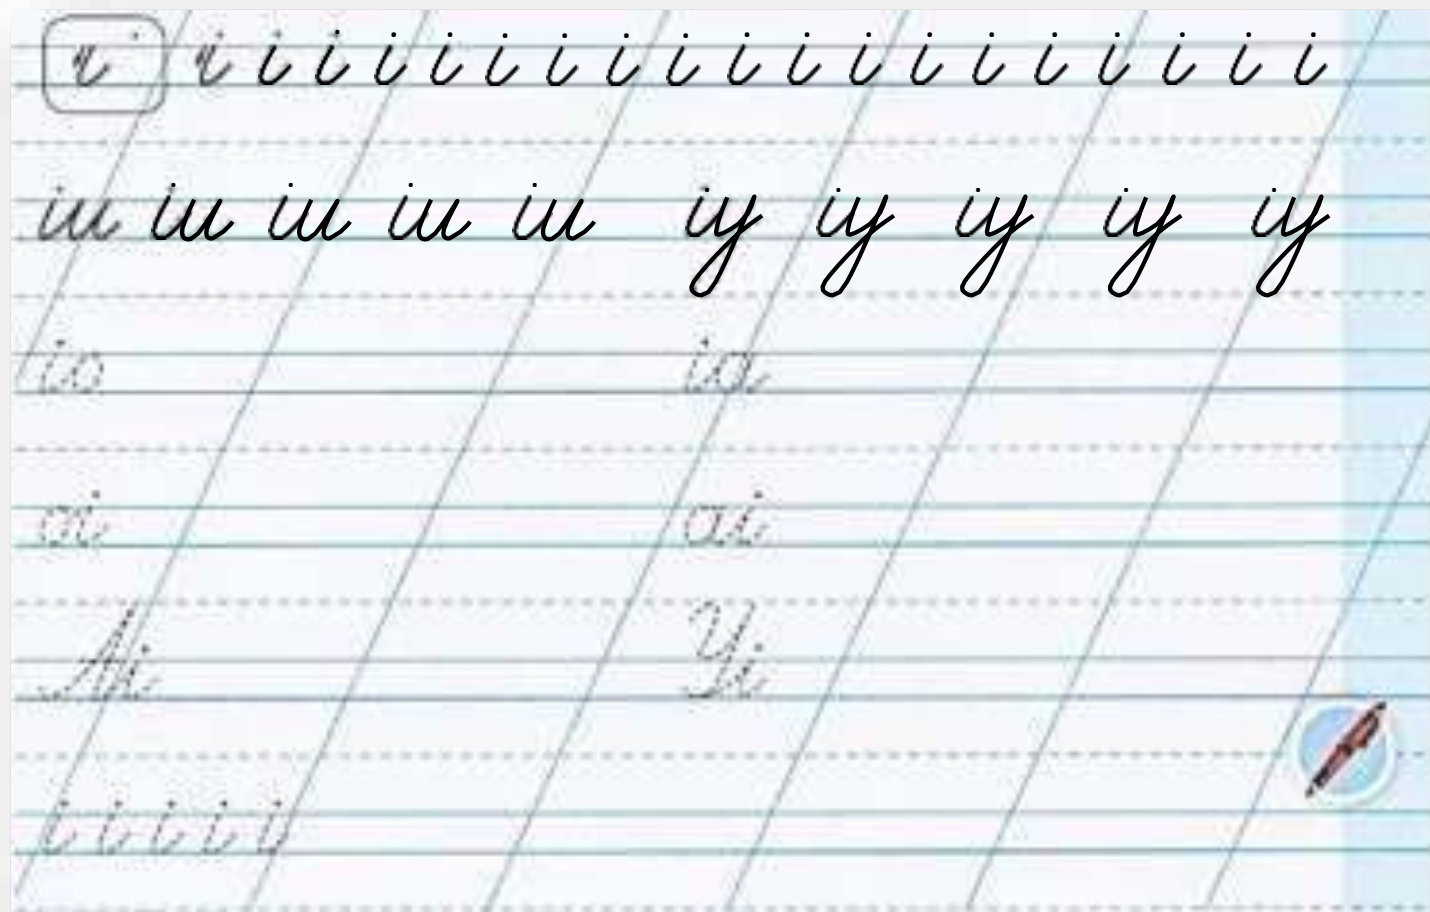 і і і і і і і і і і і і і і і і і і і і
іи іи іи іи іи іу іу іу іу іу
іо іа
оі аі
Аі Уі
і і і і і